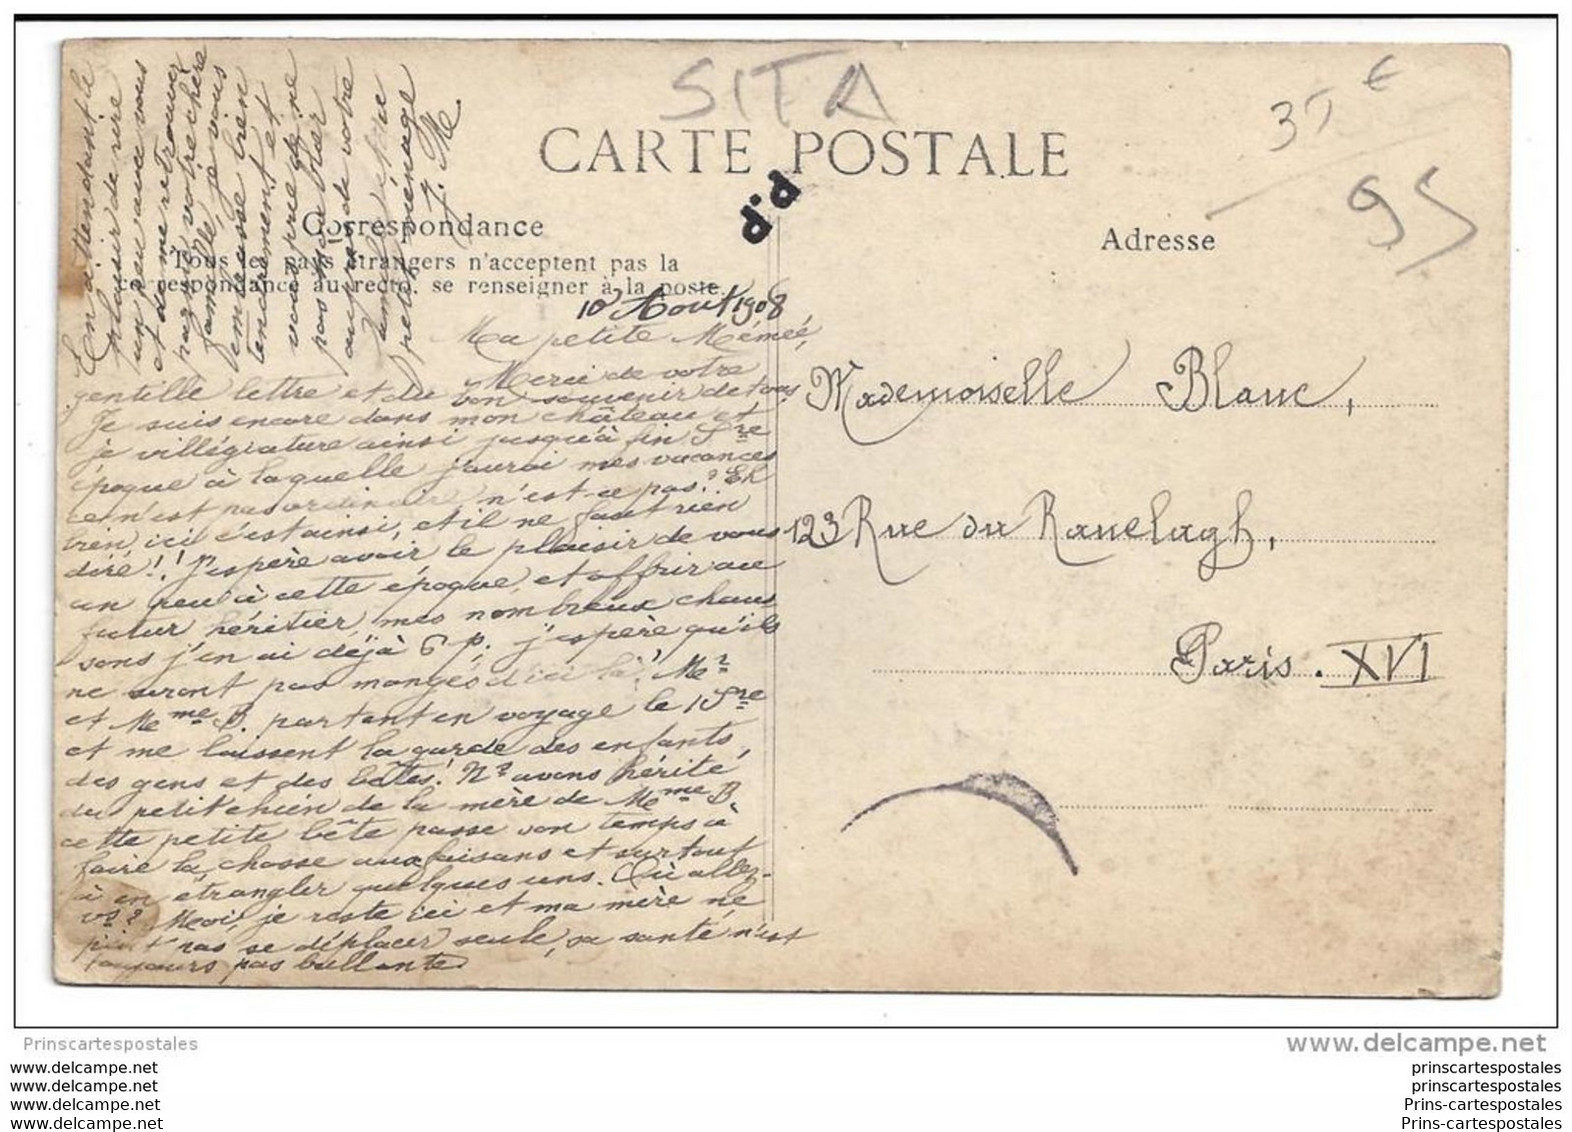 SITA
35 €
95
CARTE POSTALE
d.d
Correspondance
Adresse
Tous les pays étrangers n'acceptent pas la
correspondance au recto. se renseigner à la poste.
10 Août 1908
Ma petite Mémée,
Merci de votre
gentille lettre et du bon souvenir de tous
Je suis encore dans mon château et
je villégiature ainsi jusqu'à fin Sre
époque à laquelle j'aurai mes vacances
ce n'est pas ordinaire n'est-ce pas? Eh
bien ici c'est ainsi, et il ne faut rien
dire!! J'espère avoir le plaisir de vous
un peu à cette époque, et offrir au
futur héritier, mes nombreux chaus
sons j'en ai déjà 6 p. j'espère qu'ils
ne seront pas mangés d'ici là! Mr
et Mme B. partent en voyage le 1 Sre
et me laissent la garde des enfants,
des gens et des bêtes! Ns avons hérité
du petit chien de la mère de Mme B.
cette petite bête passe son temps à
faire la chasse aux faisans et surtout
à en étrangler quelques uns. Où allez-
vs? Moi, je reste ici et ma mère ne
peut pas se déplacer seule, sa santé n'est
toujours pas brillante
En attendant le
plaisir de rire
un peu avec vous
et de me retrouver
parmi votre chère
famille, je vous
embrasse bien
tendrement et
vous prie de ne
pas m'oublier
auprès de votre
petit ménage
J. M.
Mademoiselle Blanc,
123 Rue du Ranelagh,
Paris. XVI
Prinscartespostales
www.delcampe.net
www.delcampe.net
www.delcampe.net
www.delcampe.net
www.delcampe.net
prinscartespostales
prinscartespostales
Prins-cartespostales
Prins-cartespostales